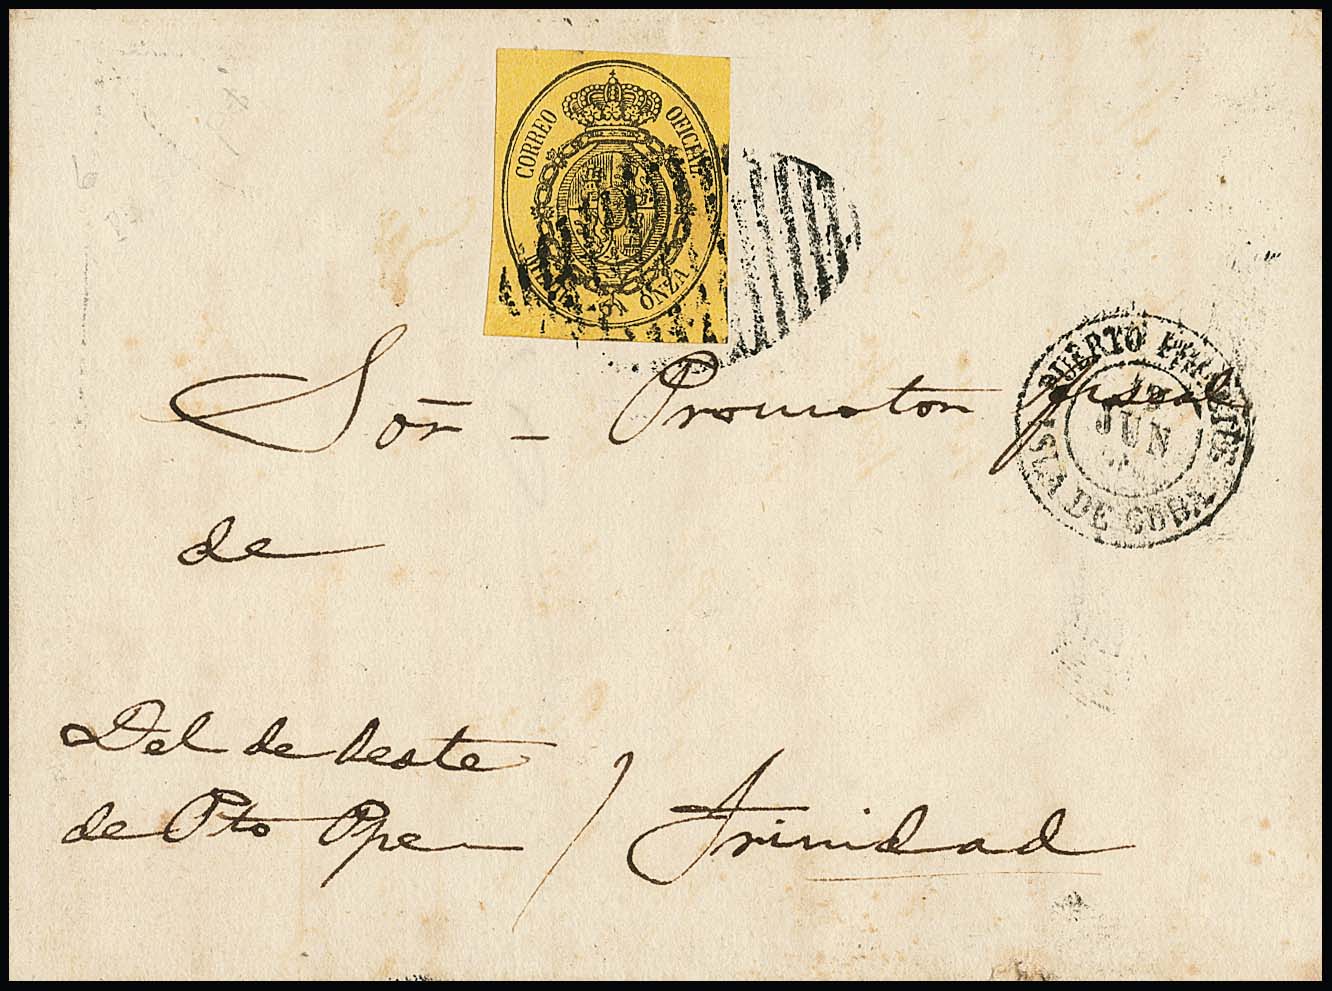 CORREO OFICIAL
ONZA
PUERTO PRINCIPE
JUN
ISLA DE CUBA
Sor̄ - Promotor fiscal
de
Del de Oeste
de Pto Ppe / Trinidad